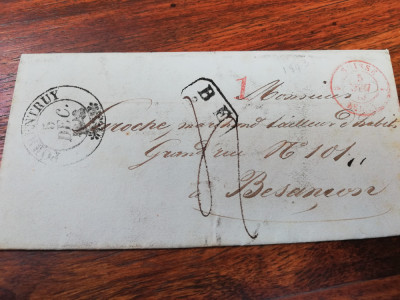 PORRENTRUY
5
DEC.
B
1
5
Monsieur
Laroche marchand tailleur d'habit
Grand rue N° 101
à Besançon